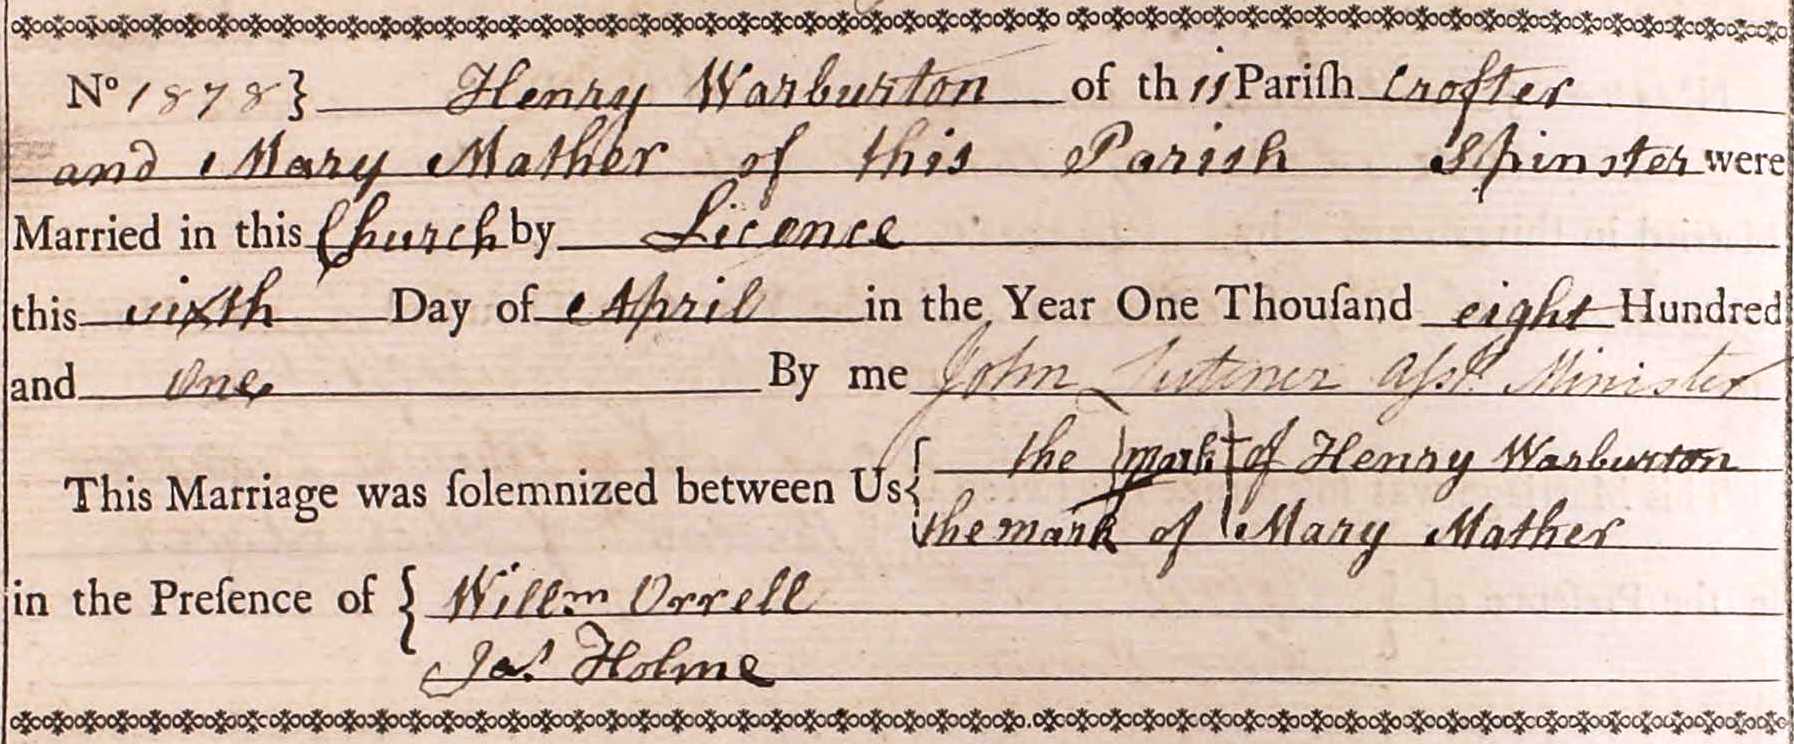 No 1878} Henry Warburton of this Pariſh Crofter
and Mary Mather of this Parish Spinster were
Married in this Church by Licence
this sixth Day of April in the Year One Thouſand eight Hundred
and One By me John Aſst. Minister
This Marriage was ſolemnized between Us { the mark of Henry Warburton
the mark of Mary Mather
in the Preſence of { Willm Orrell
Jas. Holme